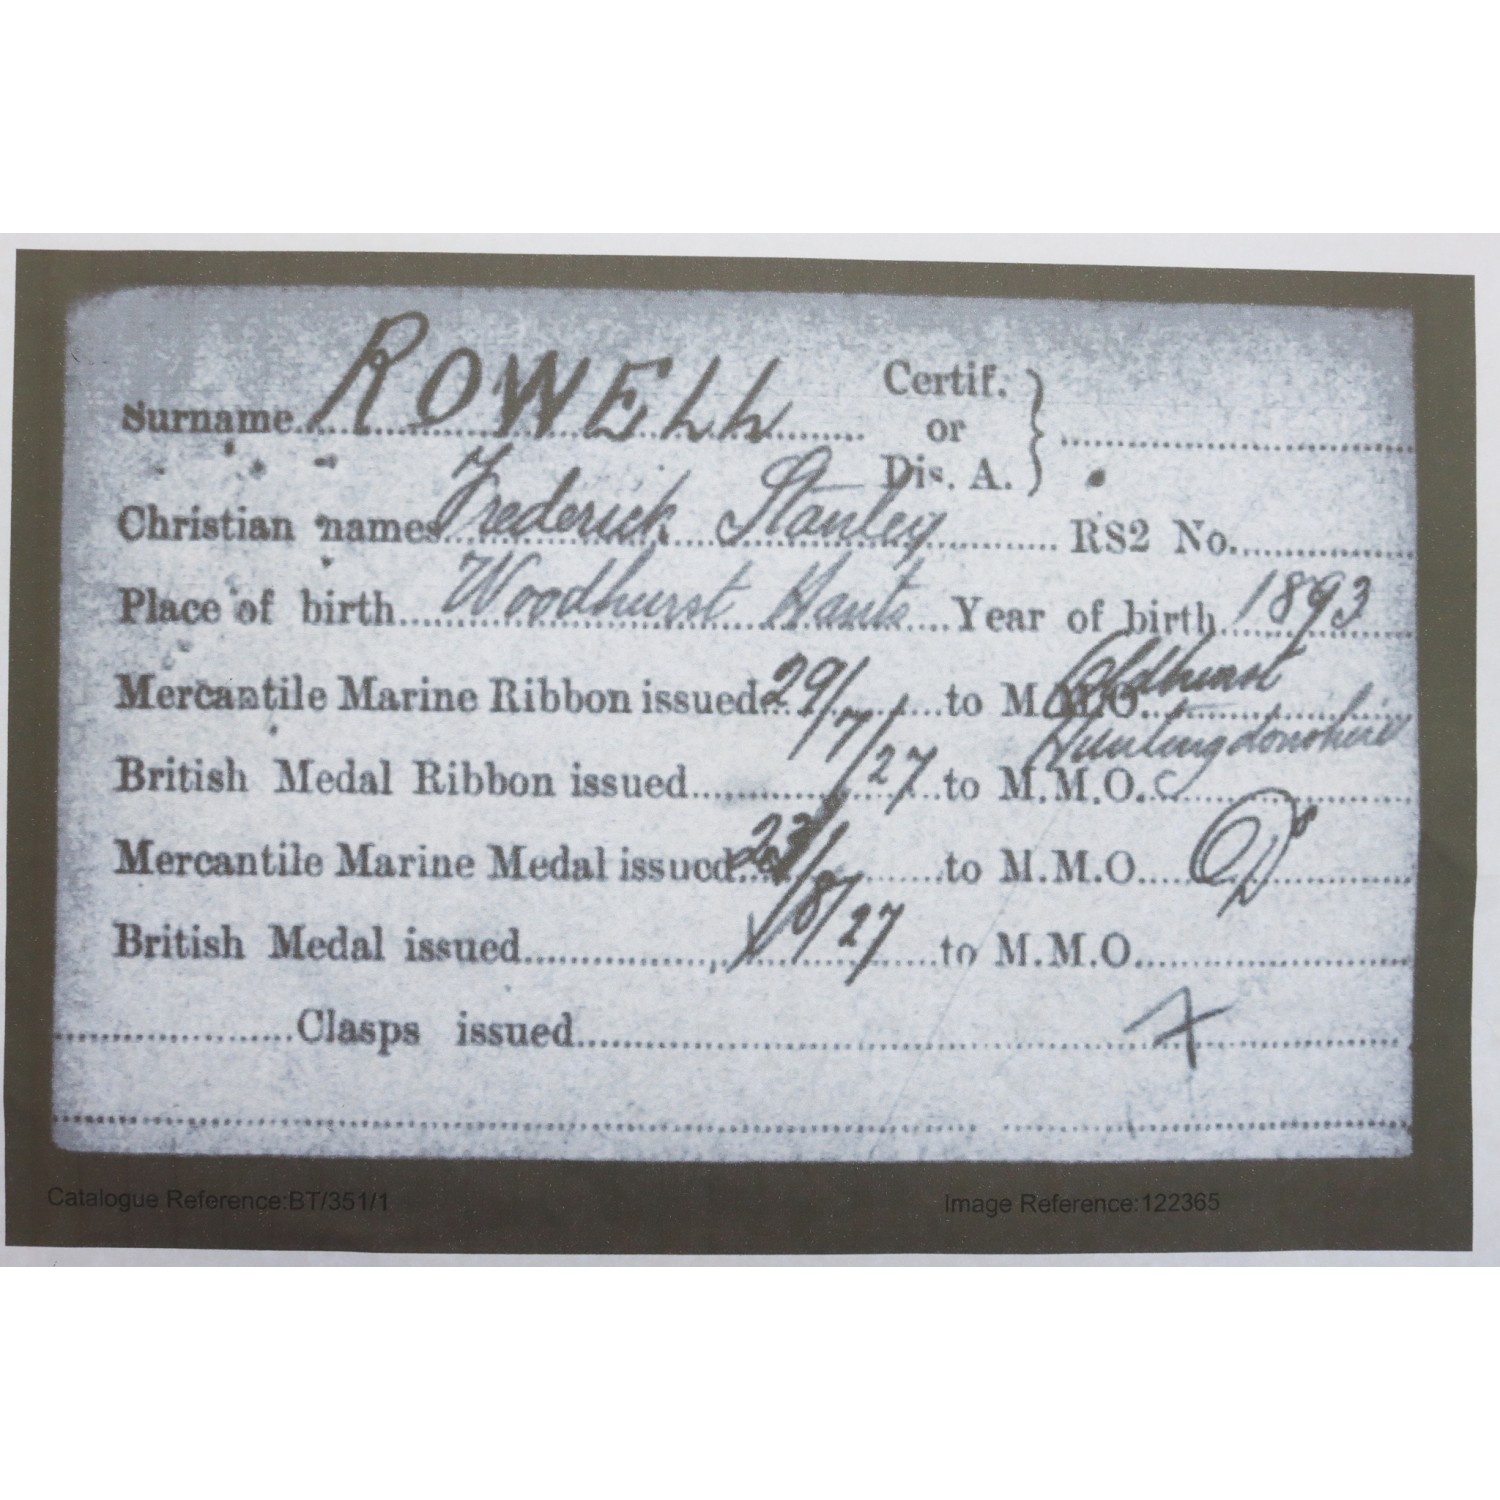 Surname ROWELL Certif. or Dis. A. }
Christian names Frederick Stanley RS2 No.
Place of birth Woodhurst Hants Year of birth 1893
Mercantile Marine Ribbon issued 29/7/27 to M.M.O. Coldhurst
Huntingdonshire
British Medal Ribbon issued to M.M.O.
Mercantile Marine Medal issued 23/8/27 to M.M.O.
British Medal issued to M.M.O.
Clasps issued
Catalogue Reference:BT/351/1 Image Reference:122365